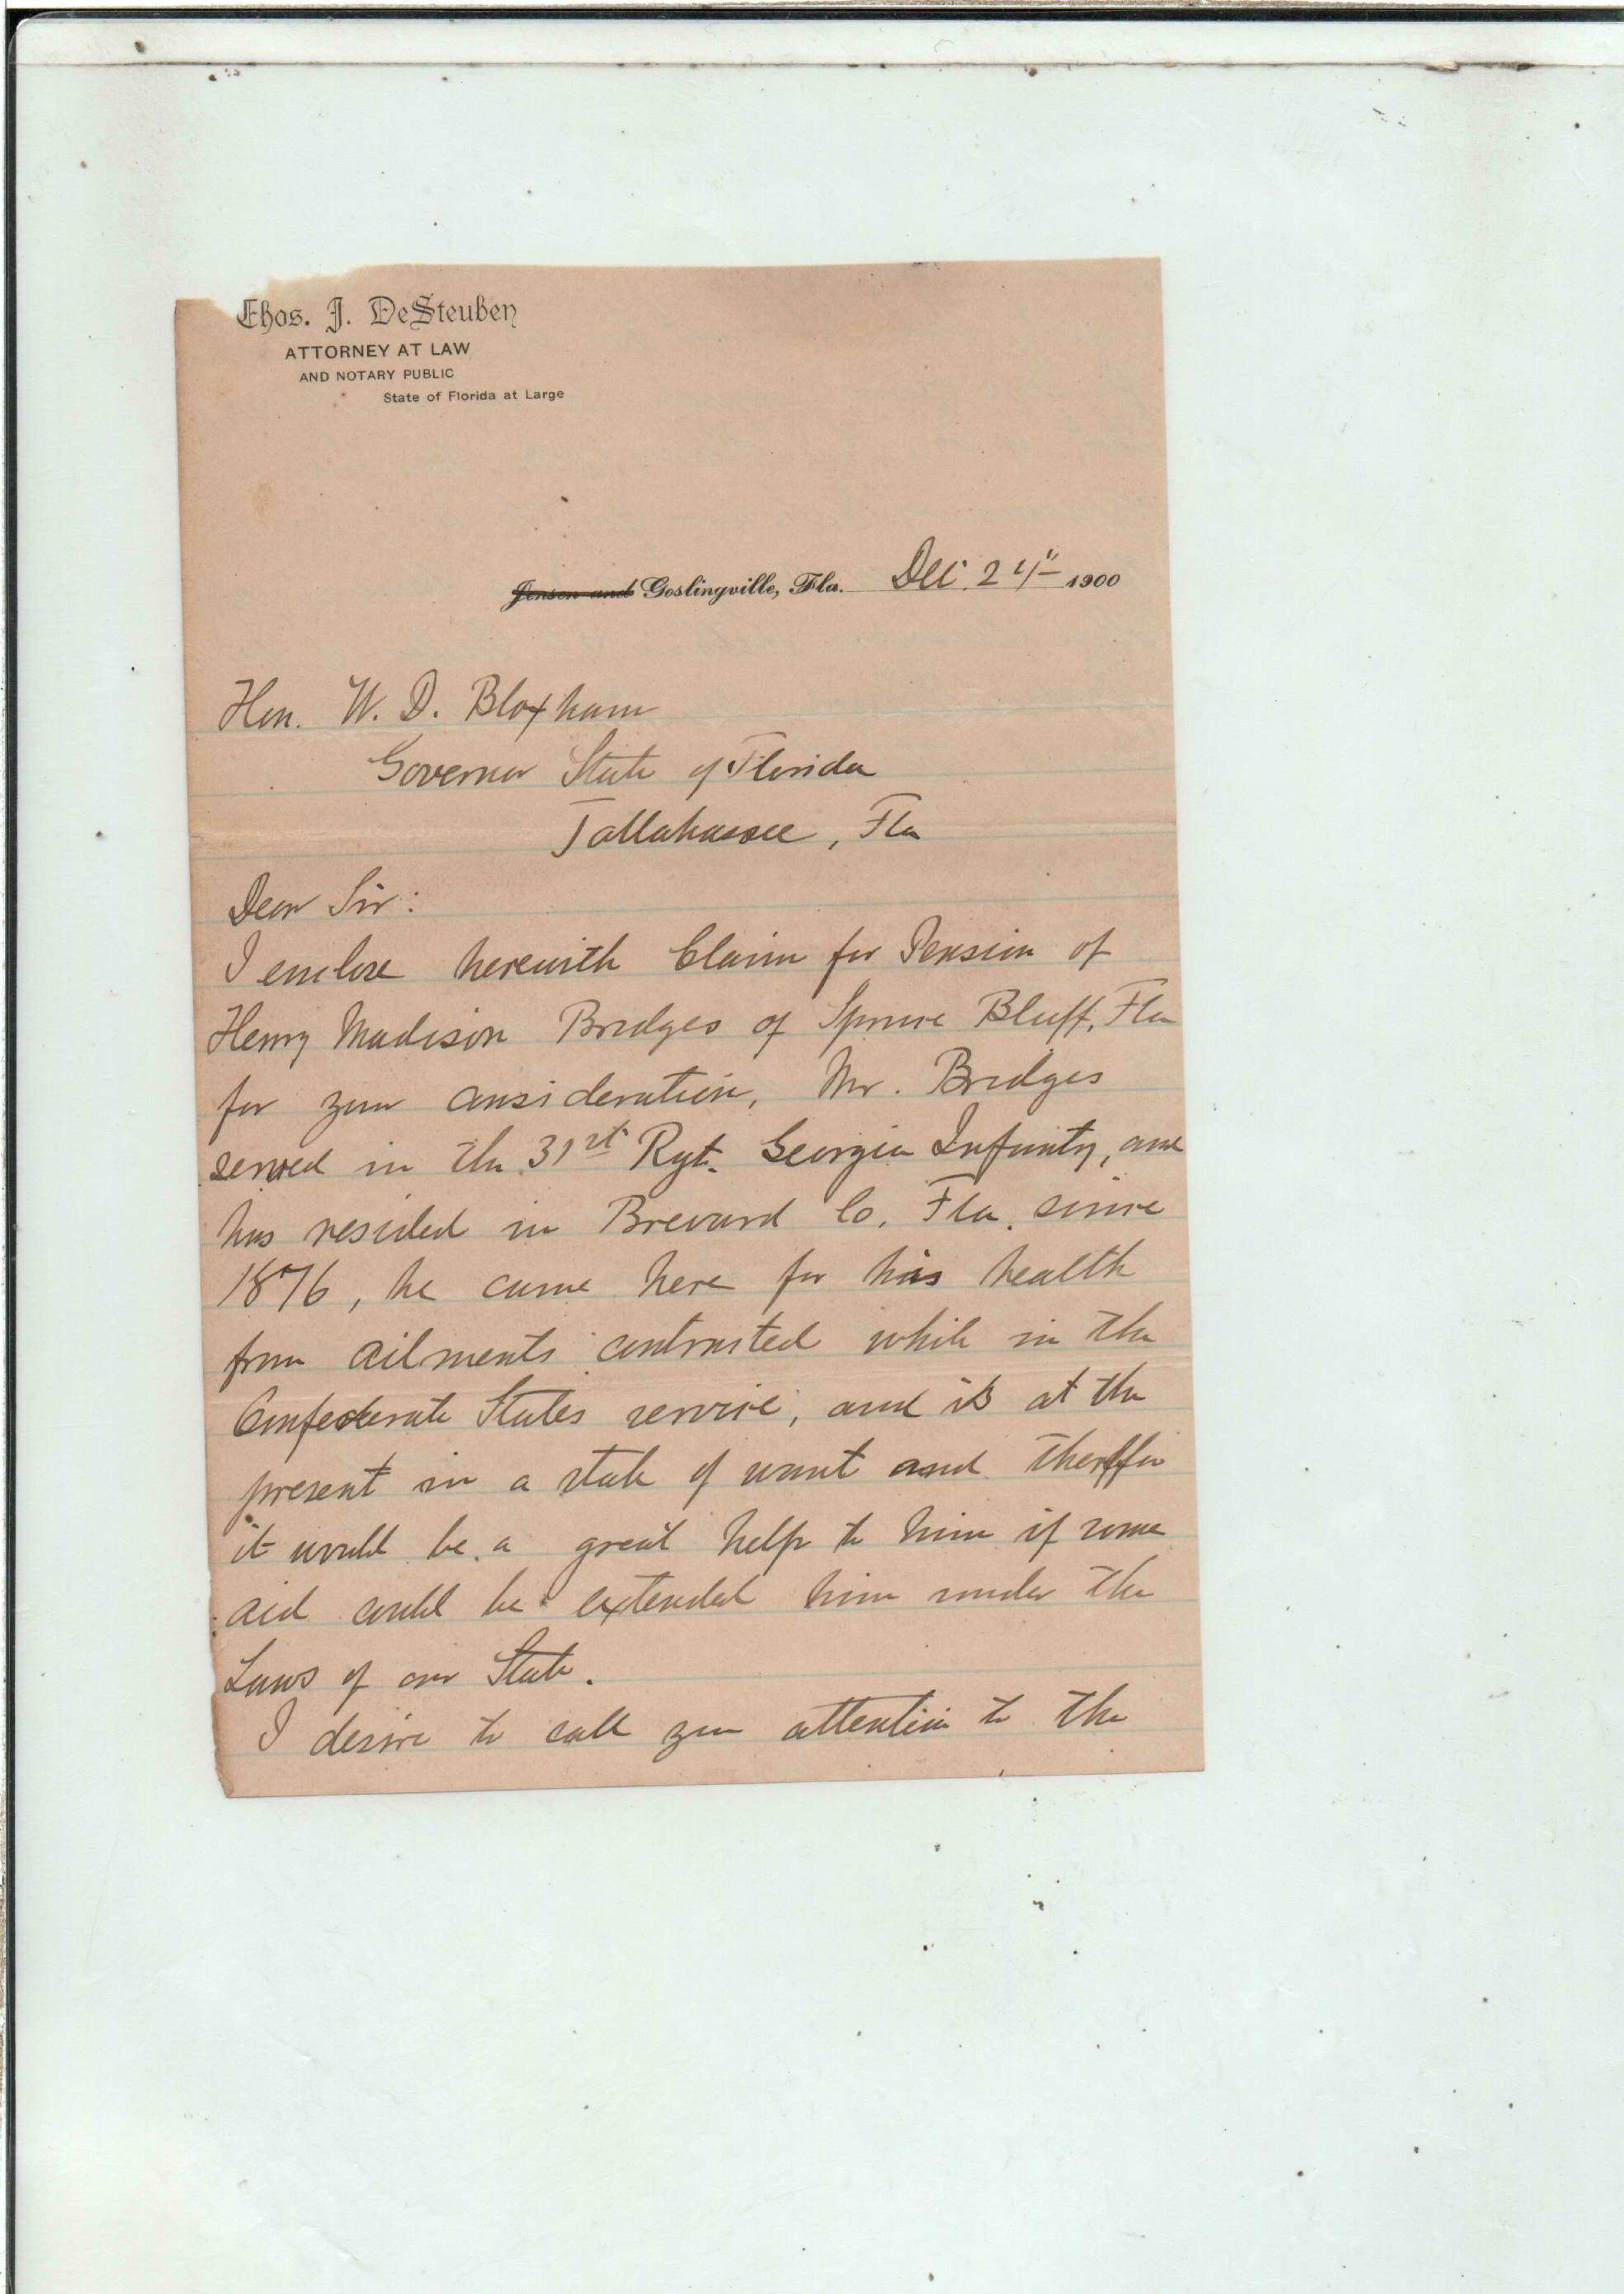 Thos. J. DeSteuben
ATTORNEY AT LAW
AND NOTARY PUBLIC
State of Florida at Large
Jensen and Goslingville, Fla. Dec. 24" 1900
Hon. W. D. Bloxham
Governor State of Florida
Tallahassee, Fla
Dear Sir:
I enclose herewith Claim for Pension of
Henry Madison Bridges of Spruce Bluff, Fla
for your consideration, Mr. Bridges
served in the 31st Rgt. Georgia Infantry, and
has resided in Brevard Co. Fla. since
1876, he came here for his health
from ailments contracted while in the
Confederate States service, and is at the
present in a state of want and therefor
it would be a great help to him if some
aid could be extended him under the
Laws of our State.
I desire to call your attention to the